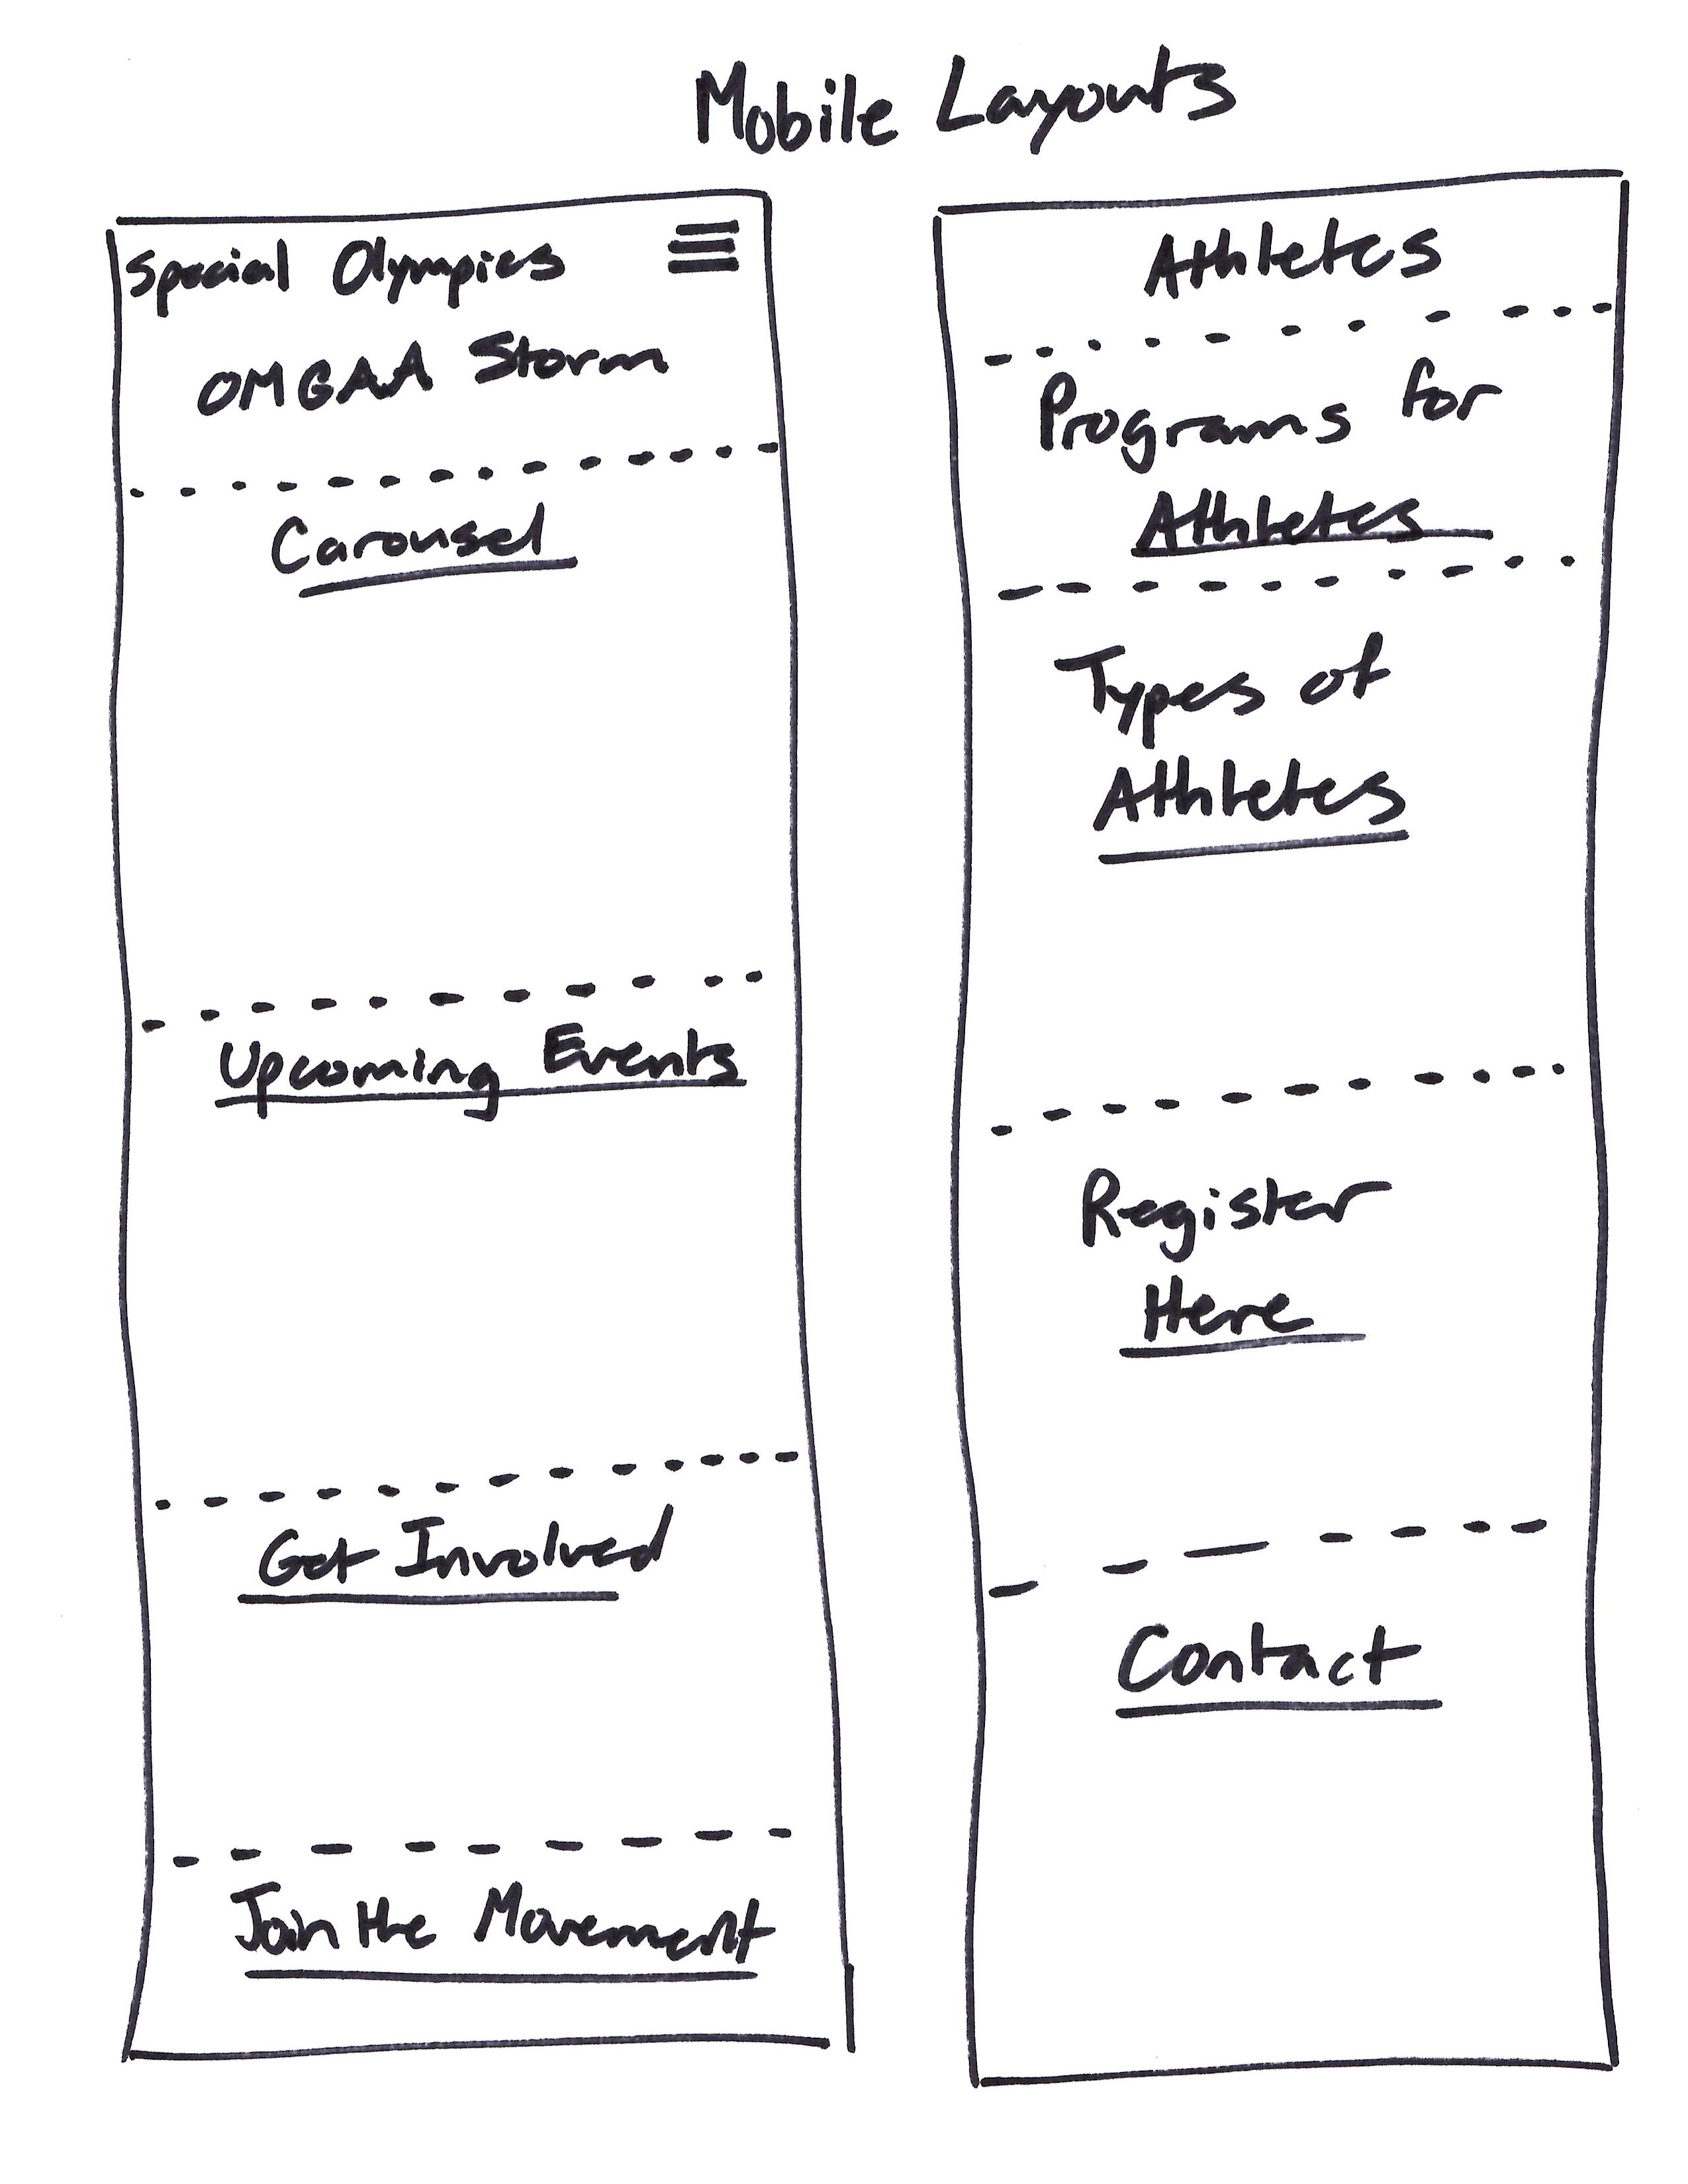 Mobile Layouts
Special Olympics
OMGAA Storm
Carousel
Upcoming Events
Get Involved
Join the Movement
Athletes
Programs for
Athletes
Types of
Athletes
Register
Here
Contact